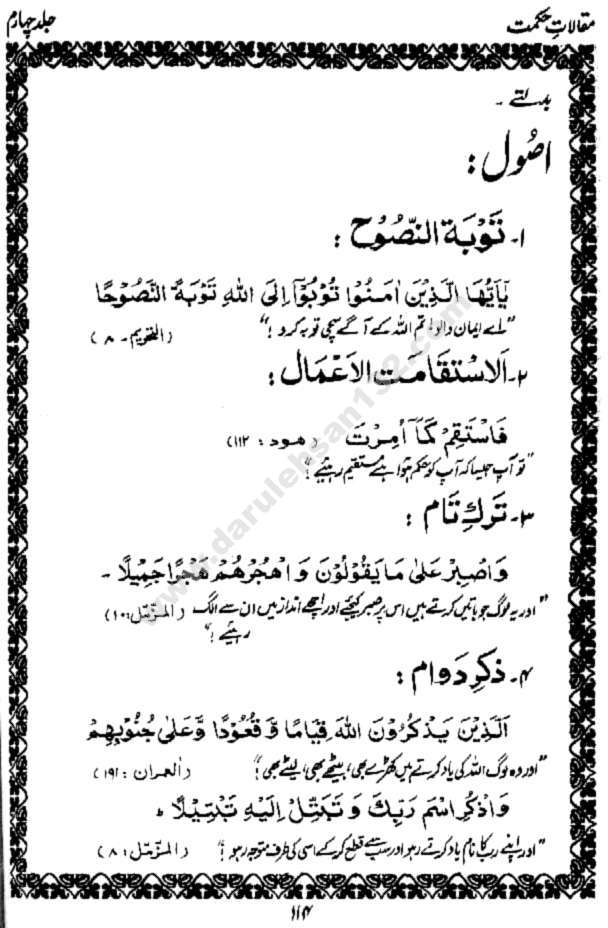 مقالاتِ حکمت
جلد چہارم
بدلتے ۔
اصُول :
۱۔ تَوْبَةُ النَّصُوْح :
يٰۤاَيُّهَا الَّذِيْنَ اٰمَنُوْا تُوْبُوْۤا اِلَى اللهِ تَوْبَةً النَّصُوْحًا
"اے ایمان والو! تم اللہ کے آگے سچی توبہ کرو !" (التحویم۔ ۸)
۲۔ اَلِاسْتِقَامَت الْاَعْمَال :
فَاسْتَقِمْ كَمَاۤ اُمِرْتَ (ھود : ۱۱۲)
"تو آپ جیسا کہ آپ کو حکم ہوا ہے مستقیم رہئیے !"
۳۔ تَرکِ تَام :
وَاصْبِرْ عَلٰى مَا يَقُوْلُوْنَ وَاهْجُرْهُمْ هَجْرًا جَمِيْلًا ۔
"اور یہ لوگ جو باتیں کرتے ہیں اس پر صبر کیجئے اور اچھے انداز میں ان سے الگ (المزّمّل:۱۰)
رہئیے !"
۴۔ ذکرِ دَوام :
اَلَّذِيْنَ يَذْكُرُوْنَ اللهَ قِيَامًا وَّقُعُوْدًا وَّعَلٰى جُنُوْبِهِمْ
"اور وہ لوگ اللہ کی یاد کرتے ہیں کھڑے بھی، بیٹھے بھی، لیٹے بھی !" (اٰلعمران : ۱۹۱)
وَاذْكُرِ اسْمَ رَبِّكَ وَتَبَتَّلْ اِلَيْهِ تَبْتِيْلًا ط
"اور اپنے رب کا نام یاد کرتے رہو اور سب سے قطع کر کے اسی کی طرف متوجہ رہو !" (المزّمّل: ۸)
۱۱۴
www.darulehsan192.com